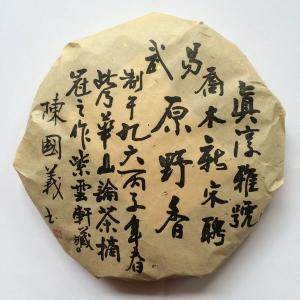 真淳雅號
喬木新宋聘
易
武
原野香
制于九六丙子年春
華山論茶摘
崔之作紫雲軒藏
陳國義